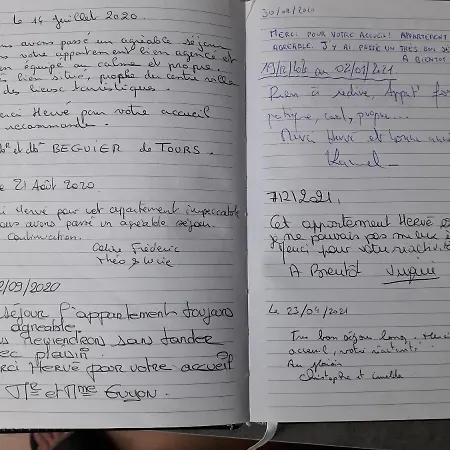 Le 14 Juillet 2020.
avons passé un agréable séjour
votre appartement bien agencé et
équipé au calme et propre
bien situé, proche du centre ville
des lieux touristiques.
Hervé pour votre accueil
recommande.
et BEGUIER de TOURS.
21 Août 2020.
Hervé pour cet appartement impeccable
avons passé un agréable séjour.
continuation.
Frédéric
Théo & Lucie
/09/2020
séjour l'appartement toujours
agréable
Reviendrons sans tarder
avec plaisir
Hervé pour votre accueil
et Mme Guyon.
30/09/2020
MERCI POUR VOTRE ACCUEIL! APPARTEMENT
AGRÉABLE. J'Y AI PASSÉ UN TRÈS BON
A BIENTOT
au 02/01/2021.
Rien à redire, Appat'
pratique, propre...
Merci Hervé et bonne
Kamel
7/2/2021.
Cet appartement Hervé
je ne pouvais pas mieux
Merci pour votre réactivité
A Bientôt
Le 23/04/2021
Très bon séjour long, merci
accueil, votre réactivité
Au plaisir
Christophe et